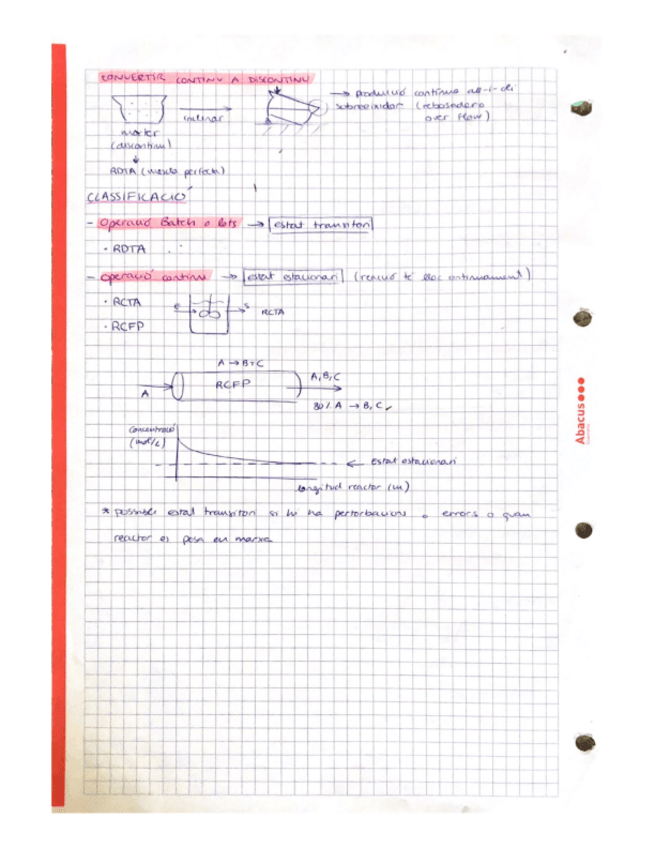 CONVERTIR CONTINU A DISCONTINU
→ producció contínua
sobreeixidor (rebosadero
over flow)
inclinar
morter
(discontinu)
RDTA (mescla perfecta)
CLASSIFICACIÓ
- Operació Batch o lots → estat transitori
· RDTA
- Operació contínua → estat estacionari (reacció té lloc contínuament)
· RCTA
e s RCTA
· RCFP
A → B+C
RCFP
A, B, C
A
80% A → B, C
Concentració
(mol/L)
← Estat estacionari
longitud reactor (m)
* possible estat transitori si hi ha perturbacions o errors o quan
reactor es posa en marxa
Abacus